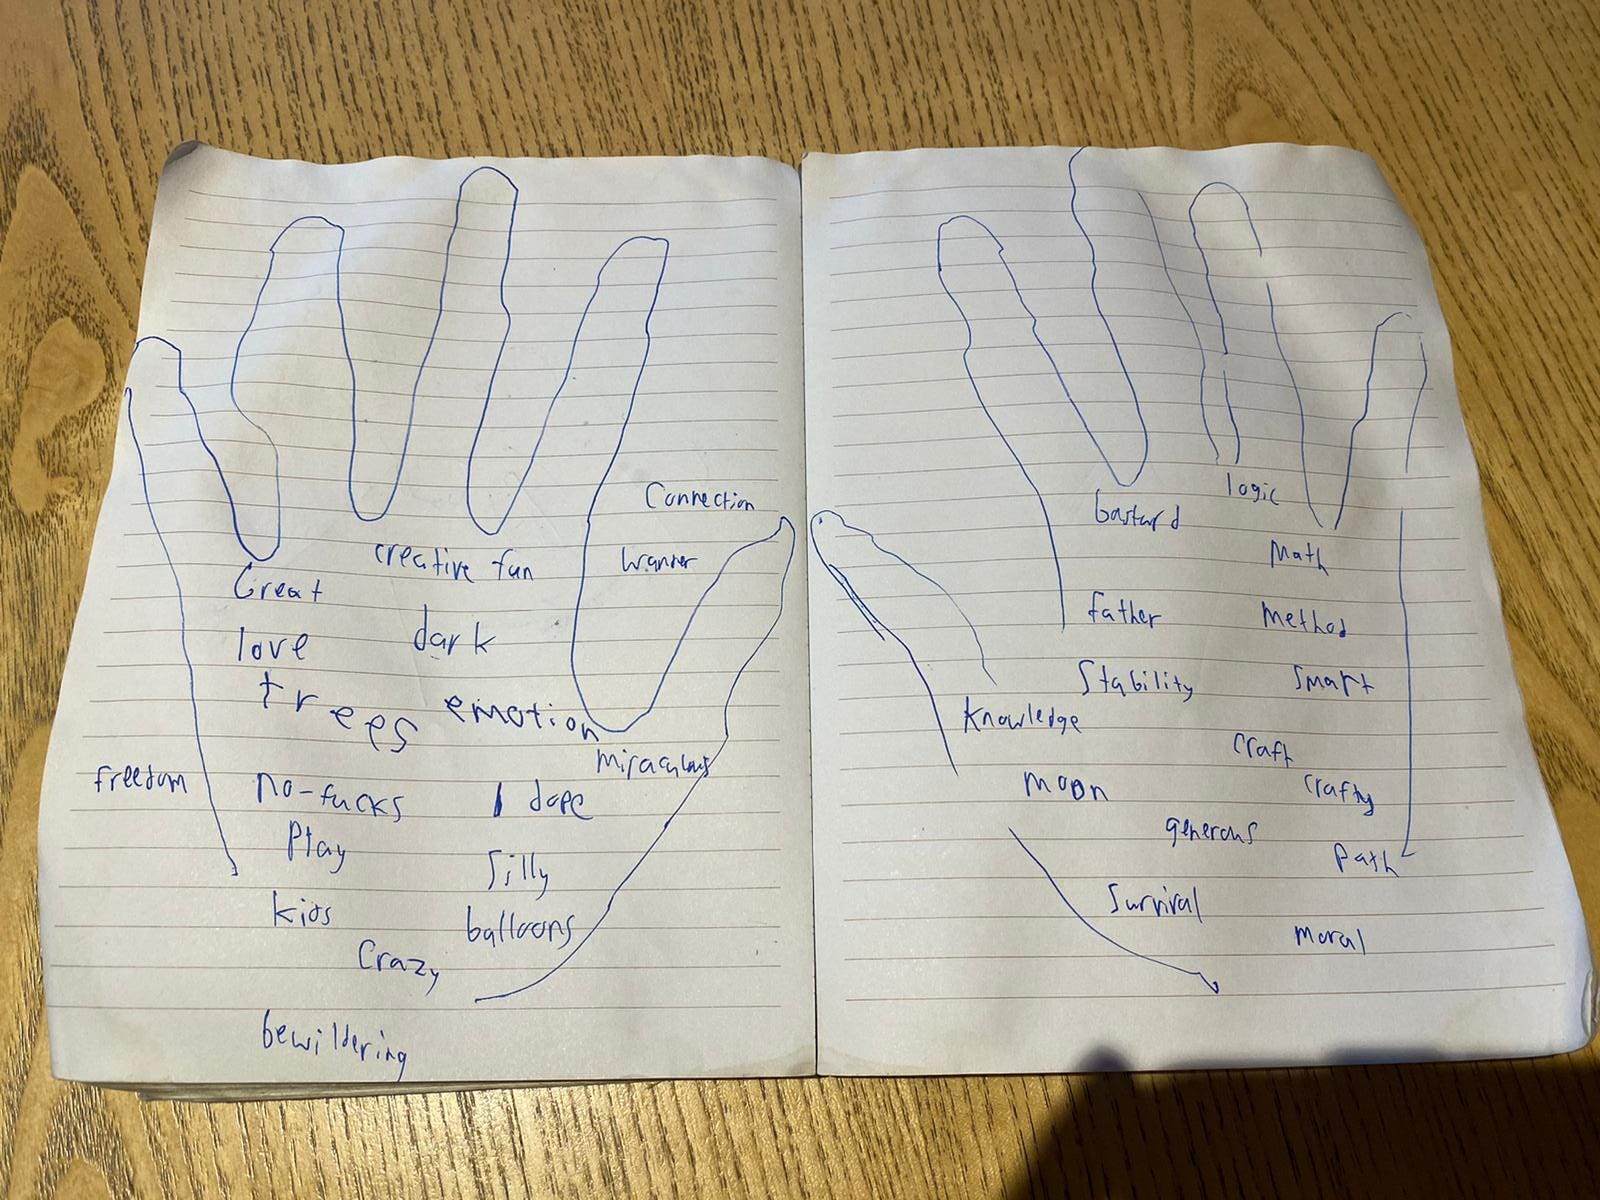 Connection
creative fun
Great
love
dark
trees
emotion
miraculous
freedom
no-fucks
dope
Play
silly
kids
balloons
Crazy
bewildering
logic
bastard
Math
father
method
Stability
smart
knowledge
craft
moon
crafty
generous
path
Survival
moral